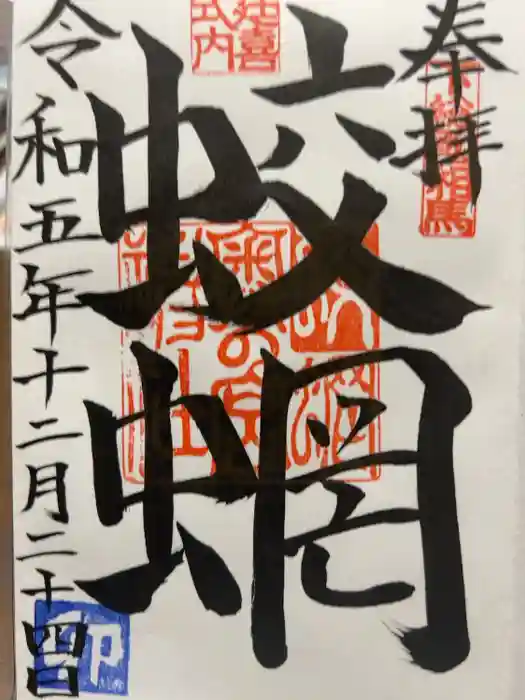 奉拝
下総國相馬
延喜
式内
蛟蝄
令和五年十二月二十四日
卯